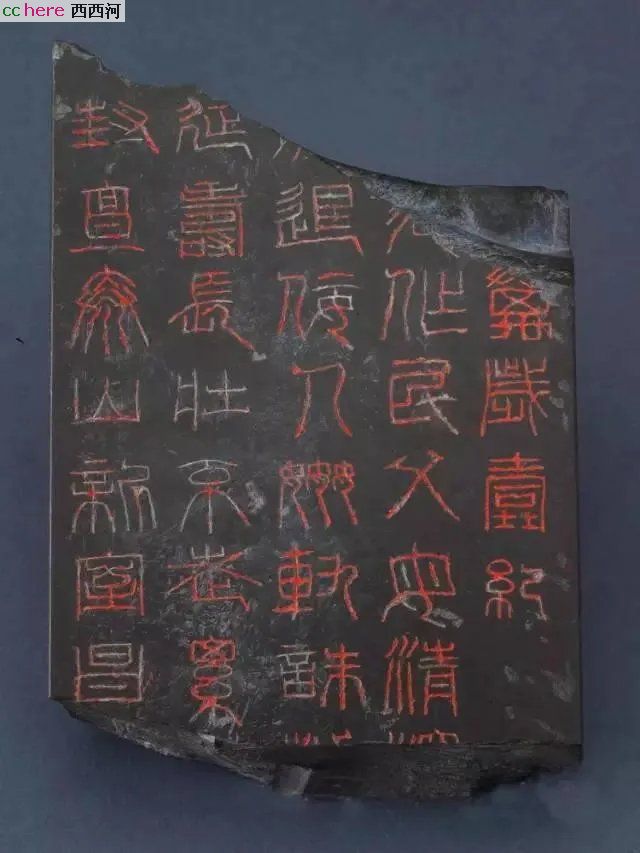 cchere 西西河
萬歲壹紀
作民父母清
退佞人姦軌誅
延壽長壯不老累
封亶泰山新室昌